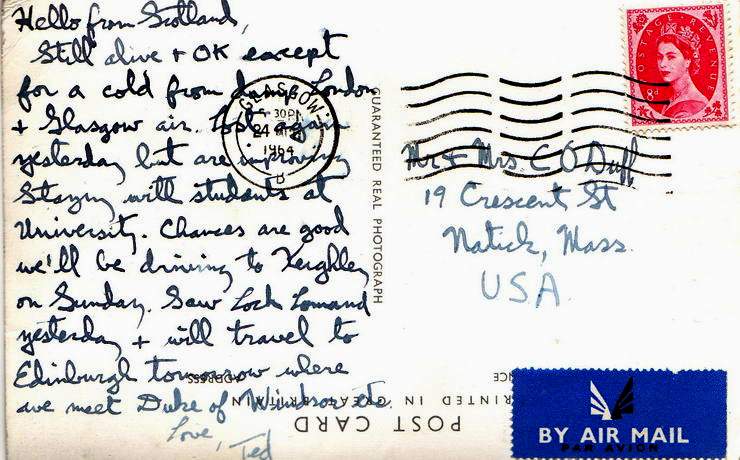 Hello from Scotland,
Still alive + OK except
for a cold from damp London
+ Glasgow air. Lost again
yesterday but are improving
Staying with students at
University. Chances are good
we'll be driving to Keighley
on Sunday. Saw Loch Lomand
yesterday + will travel to
Edinburgh tomorrow where
we meet Duke of Windsor etc
Love, Ted
GLASGOW
30 PM
24
1964
D
GUARANTEED REAL PHOTOGRAPH
POSTAGE REVENUE
8d
Mr + Mrs. C O Duff
19 Crescent St
Natick, Mass.
USA
ADDRESS
PRINTED IN GREAT BRITAIN
POST CARD
BY AIR MAIL
PAR AVION